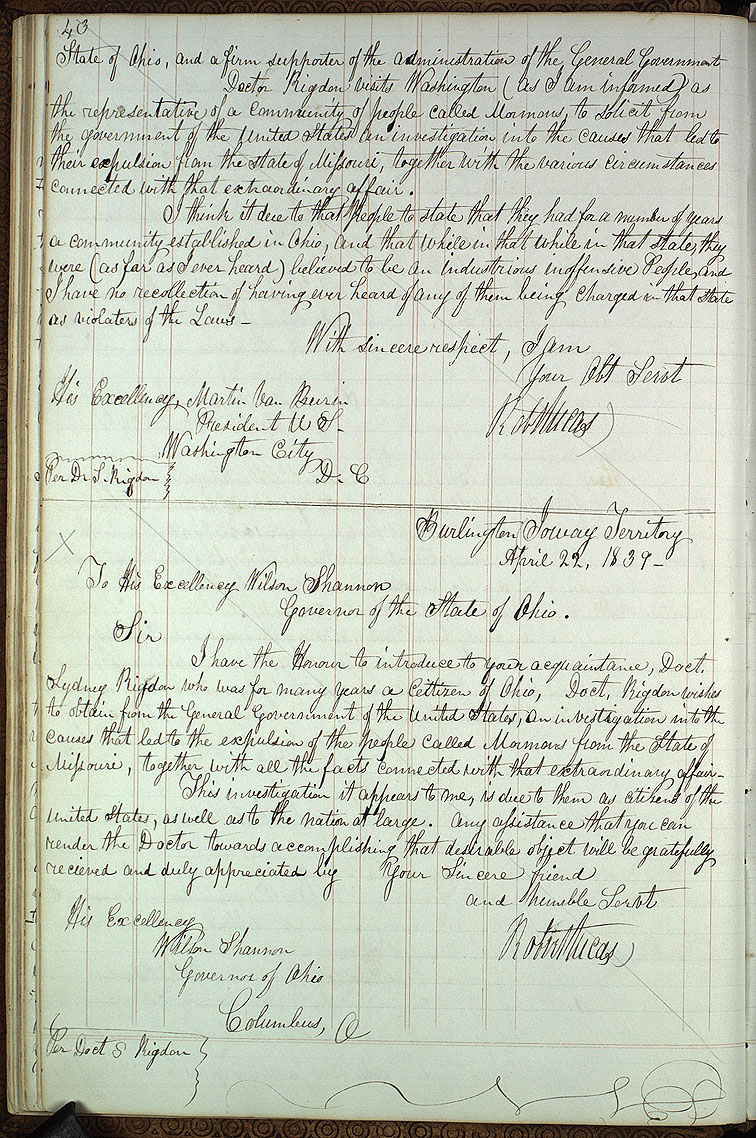 40
State of Ohio, and a firm supporter of the administration of the General Government
Doctor Rigdon visits Washington (as I am informed) as
the representative of a community of people called Mormons, to solicit from
the government of the United States an investigation into the causes that led to
their expulsion from the State of Missouri, together with the various circumstances
connected with that extraordinary affair.
I think it due to that People to state that they had for a number of years
a community established in Ohio, and that while in that while in that state, they
were (as far as I ever heard) believed to be an industrious inoffensive People, and
I have no recollection of having ever heard of any of them being charged in that state
as violaters of the Laws—
With sincere respect, I am
Your Obt Servt
His Excellency, Martin Van Buren
Robt Lucas
President U S.
Washington City
Per Dr S. Rigdon
D. C
Burlington Ioway Territory
April 22, 1839—
To His Excellency Wilson Shannon
Governor of the State of Ohio.
Sir
I have the Honour to introduce to your acquaintance, Doct.
Sydney Rigdon who was for many years a cittizen of Ohio, Doct. Rigdon wishes
to obtain from the General Government of the United States, an investigation into the
causes that led to the expulsion of the people called Mormons from the State of
Missouri, together with all the facts connected with that extraordinary affair—
This investigation it appears to me, is due to them as citizens of the
United States, as well as to the nation at large. Any assistance that you can
render the Doctor towards accomplishing that desirable object will be gratefully
recieved and duly appreciated by Your Sincere friend
and humble Servt
His Excellency
Robert Lucas
Wilson Shannon
Governor of Ohio
Columbus, O
Per Doct S Rigdon